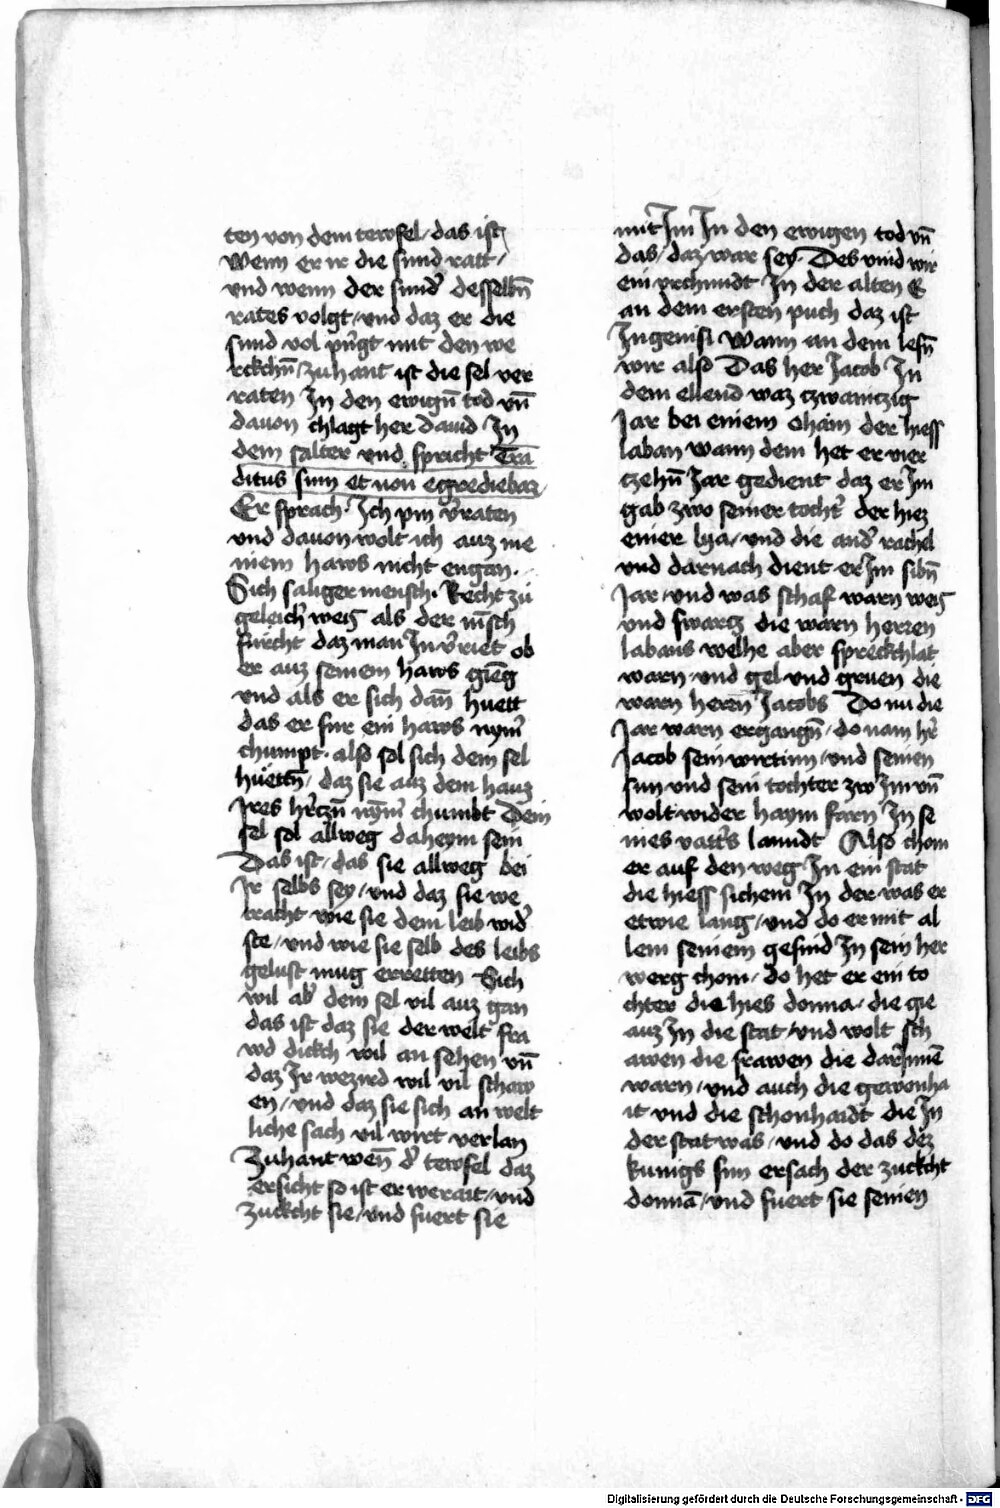 ten von dem tewfel / das ist
Wenn er ir die sund ratt /
vnd wenn der sund̉ desselbn̄
rates volgt / vnd daz er die
sund vol pn̉gt mit den we
rckchn̄ / zuhant ist die sel ver
raten In den ewign̄ tod vn̄
dauon chlagt her dauid In
dem salter vnd spricht Tra
ditus sum et non egrediebar
Er sprach · Ich pin v̉raten
vnd dauon wolt ich auz me
niem haws nicht engan ·
Sich saliger mensch · Recht zu
geleich̉ weis als der mēsch
furcht daz man In v̉riet ob
er auz seinem haws gieng
vnd als er sich dan̄ huett
das er fur ein haws nym̉
chumpt · also sol sich dem sel
huettn̄ / daz sie auz dem hauz
Ires hr̉czn̄ nȳm̉ chumbt Dein
sel sol allweg daheym sein
Das ist / das sie allweg bei
Ir selbs sey / vnd daz sie we
tracht wie sie dem leib wid̉
ste / vnd wie sie selb des leibs
gelust mug erretten Sich
wil ab̉ dem sel vil auz gan
das ist daz sie der welt fra
wd dickch wil an sehen vn̄
daz Ir wezird wil vil schaw
en / vnd daz sie sich an welt
liche sach vil wirt verlan
Zuhant wen̄ d̉ tewfel daz
ersicht so ist er werait / vnd
Zuckcht sie / vnd fuert sie
mit Im In den ewigen tod vn̄
das / daz war sey · Des vind wir
ein vrchundt In der alten E
an dem ersten puch daz ist
In genisi Wann an dem lesn̄
wir also Das her Jacob In
dem ellend waz czwainczig
Jar bei einem oham der hiess
laban wann dem het er vier
czehn̄ Jar gedient daz er Im
gab zwo seiner tocht̉ der hiez
einer lya / vnd die and̉ rachel
vnd darnach dient er Im sibn̄
Jar / vnd was schaf warn weis
vnd swartz die warn herren
labans welhe aber spreckchlat
warn vnd gel vnd gruen die
warn heren Jacobs Do nu die
Jar warn ergangn̄ / do nam hr̉
Jacob sein wirtinn / vnd seinen
sun vnd sein tochter zw Im vn̄
wolt wider haym farn In se
nies vatt̉s lanndt Also chom
er auf den weg In ein stat
die hiess sichem In der was er
etwie lang / vnd do er mit al
lem seniem gesind In sein her
werg chom / do het er ein to
chter die hies donna / die gie
auz In die stat / vnd wolt sch
awen die frawen die dar Inne
warn / vnd auch die gewonha
it vnd die schonhaidt die In
der stat was / vnd do das dez
kunigs sun ersach der zuckcht
donnā / vnd fuert sie seinen
Digitalisierung gefördert durch die Deutsche Forschungsgemeinschaft - DFG